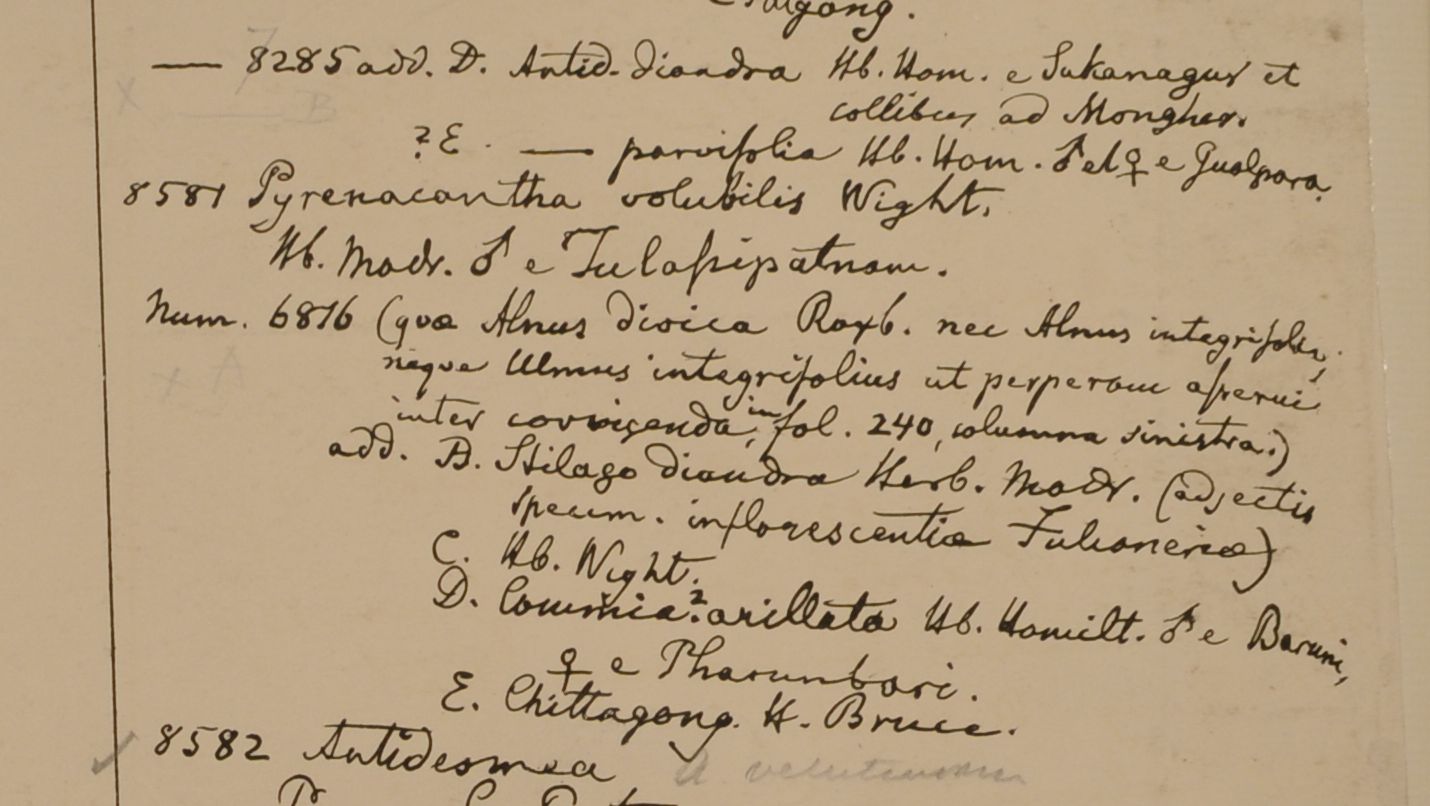 —— 8285 add. D. Antid. diandra Hb. Ham. e Sukanagur et
collibus ad Monghur.
?E. —— parvifolia Hb. Ham. ♂ et ♀ e Gualpara.
8581 Pyrenacantha volubilis Wight.
Hb. Madr. ♂ e Tulasipatnam.
Num. 6816 (quæ Alnus dioica Roxb. nec Alnus integrifolia,
neque Ulmus integrifolius ut perperam asserui
inter corrigenda, in fol. 240, columna sinistra.)
add. B. Stilago diandra Herb. Madr. (adjectis
specim. inflorescentiæ Falconeriæ)
C. Hb. Wight.
D. Commia? arillata Hb. Hamilt. ♂ e Baruni,
♀ e Pharunbari.
E. Chittagong. H. Bruce.
8582 Antidesmea